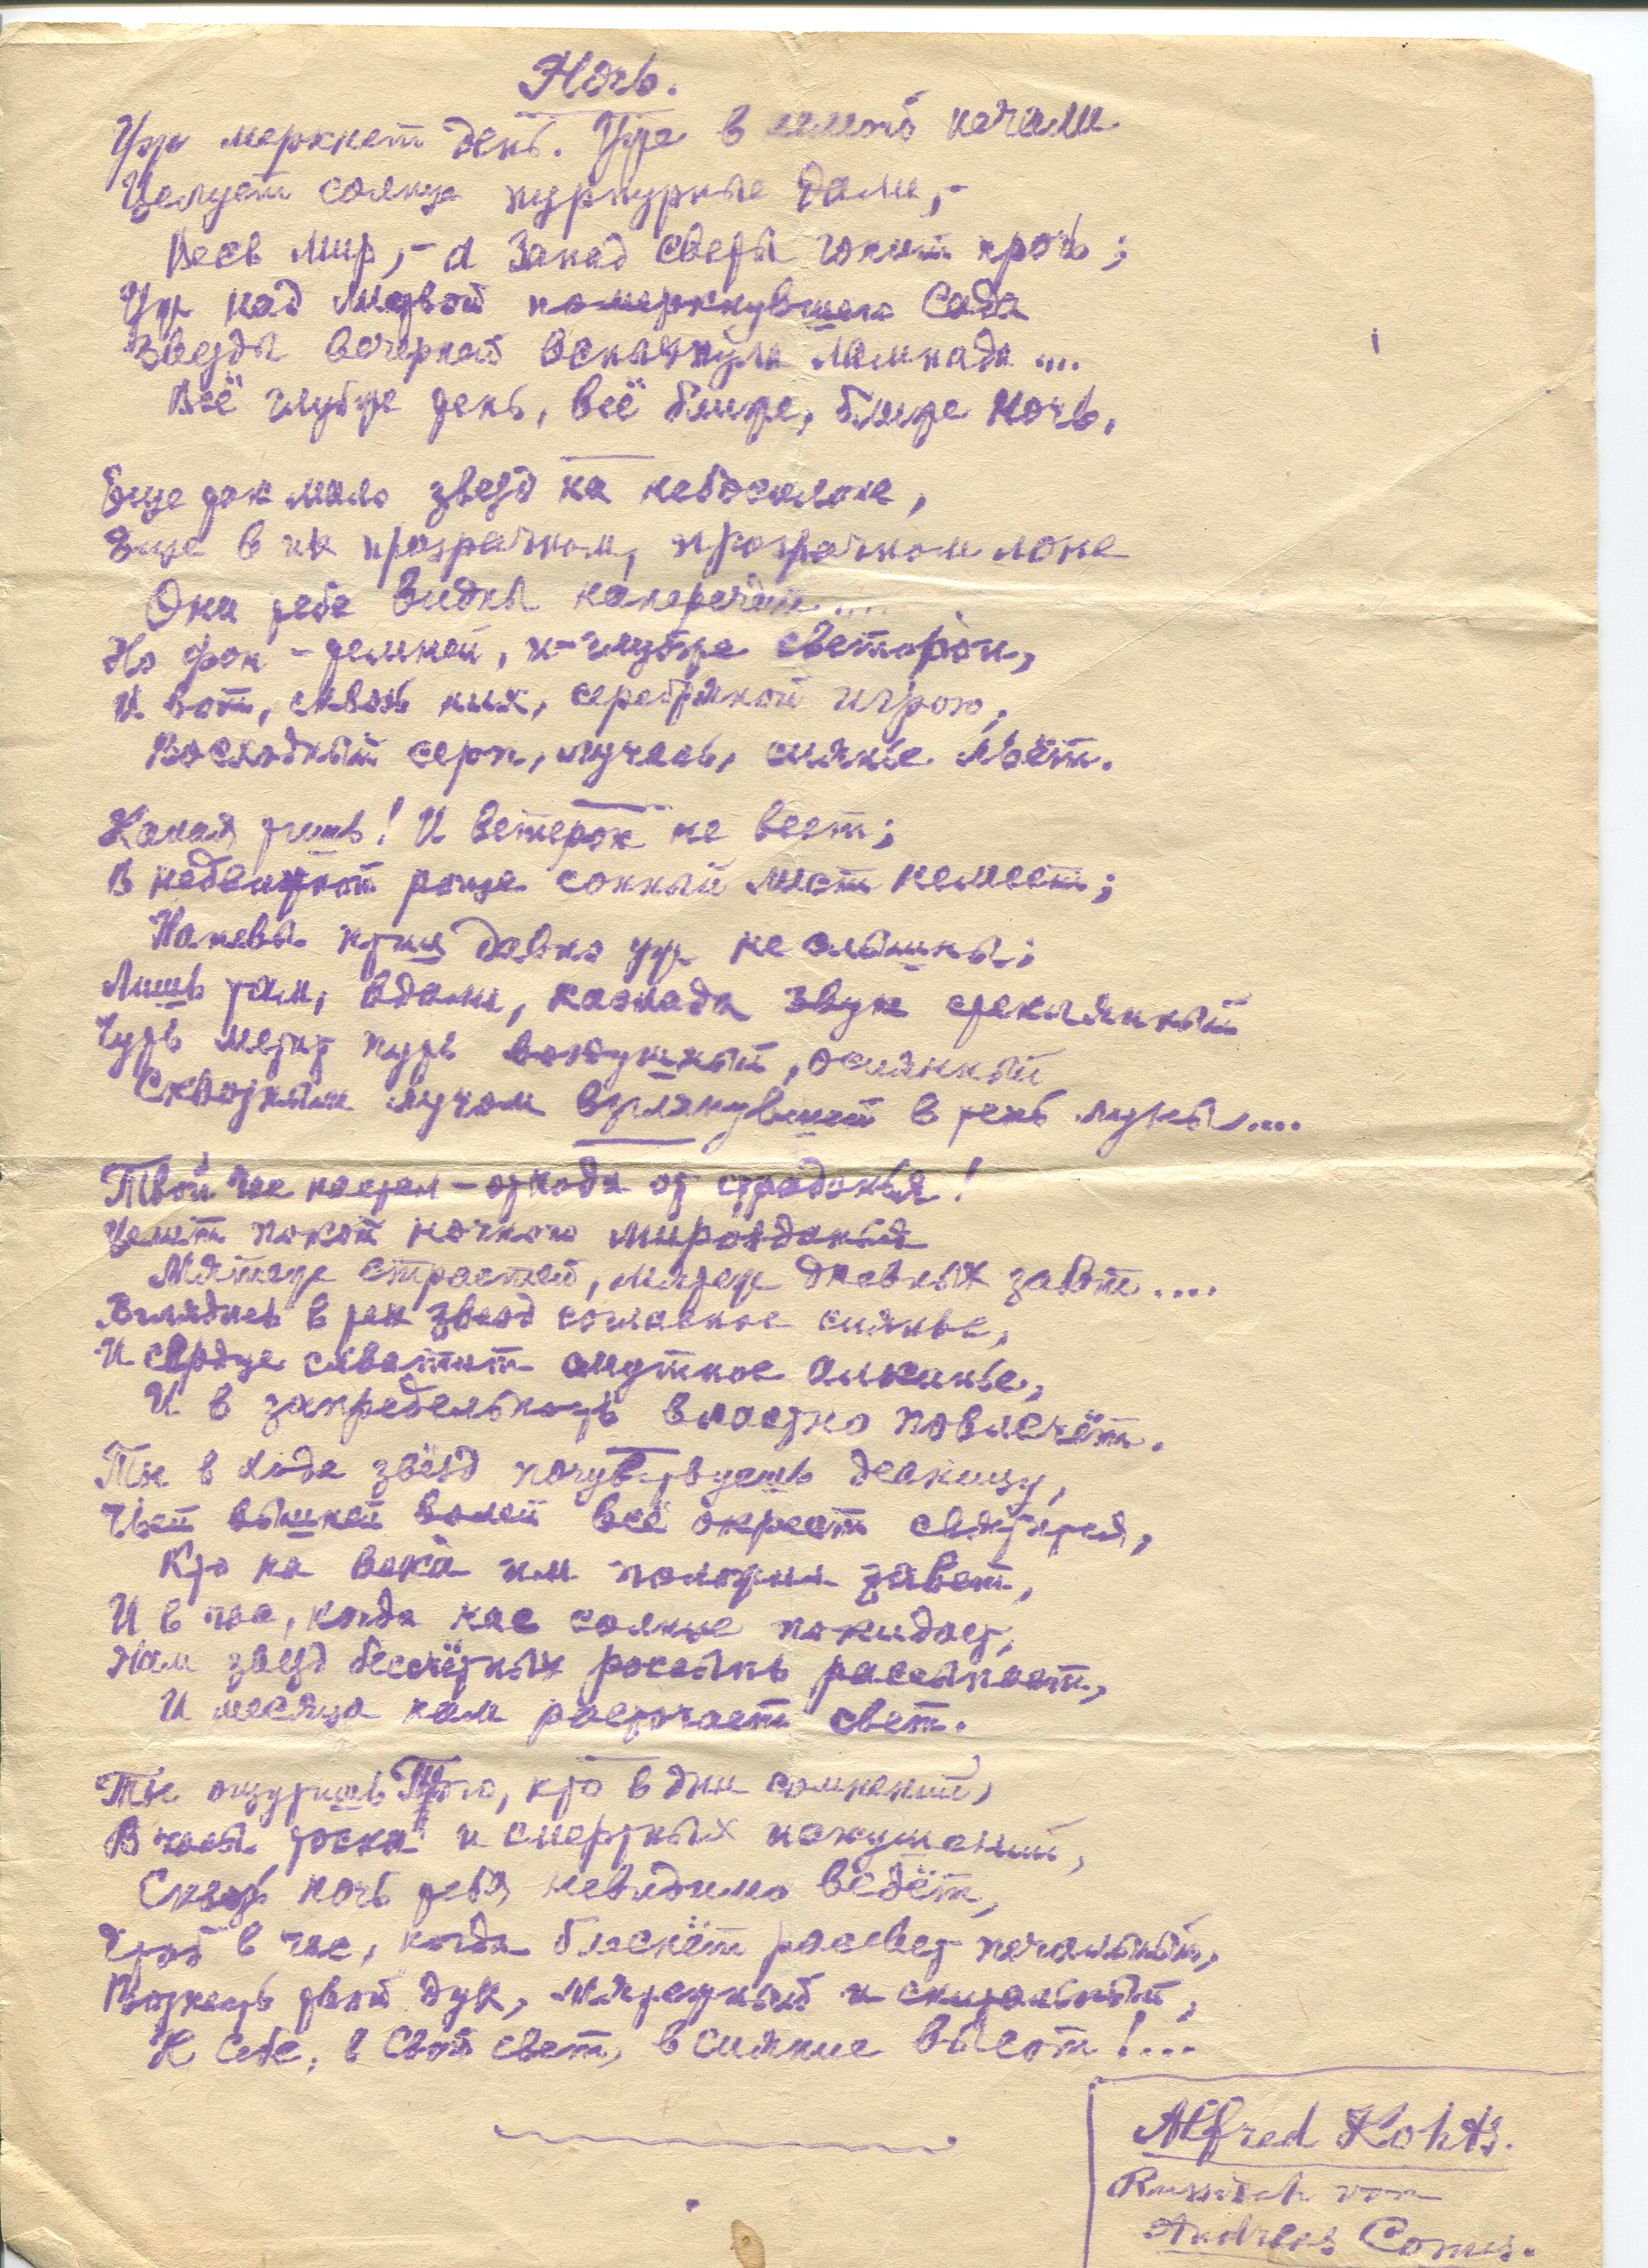 Ночь.
Уж меркнет день. Уже в немой печали
Целует солнце пурпурные дали,-
Весь мир,- и Запад светы гонит прочь;
Уж над листвой померкнувшего Сада
Звезды вечерней вспыхнула лампада ...
Всё глубже день, всё ближе, ближе Ночь.
Еще так мало звезд на небосклоне,
Еще в их прозрачном, прозрачном лоне
Они тебе видны наперечёт....
Но фон - темней, и глубже светорои,
И вот, сквозь них, серебряной игрою,
Восходный серп, лучась, сиянье льёт.
Какая тишь! И ветерок не веет;
В недвижной роще сонный лист немеет;
Напевы птиц давно уж не слышны;
Лишь там, вдали, каскада звук стеклянный
Чуть метит путь воздушный, осиянный
Сквозным лучом взглянувшей в тень луны....
Твой час настал - отхода от страданья!
Целит покой ночного мирозданья
Мятеж страстей, мятеж дневных забот....
Вглядись в тех звезд согласное сиянье,
И сердце схватит смутное алканье,
И в запредельность властно повлечёт.
Ты в ходе звёзд почувствуешь десницу,
Чьей вышней волей всё окрест святится,
Кто на века им положил завет,
И в час, когда нас солнце покидает,
Нам звезд бессчётных россыпь рассыпает,
И месяца нам расточает свет.
Ты ощутишь Того, кто в дни сомнений,
В часы тоски и смертных искушений,
Сквозь ночь тебя невидимо ведёт,
Чтоб в час, когда блеснёт рассвет печальный,
Вознесть твой дух, мятежный и скитальный,
К Себе, в Свой свет, в сияние высот!...
Alfred Kohts.
Russisch von
Andreas Comes.